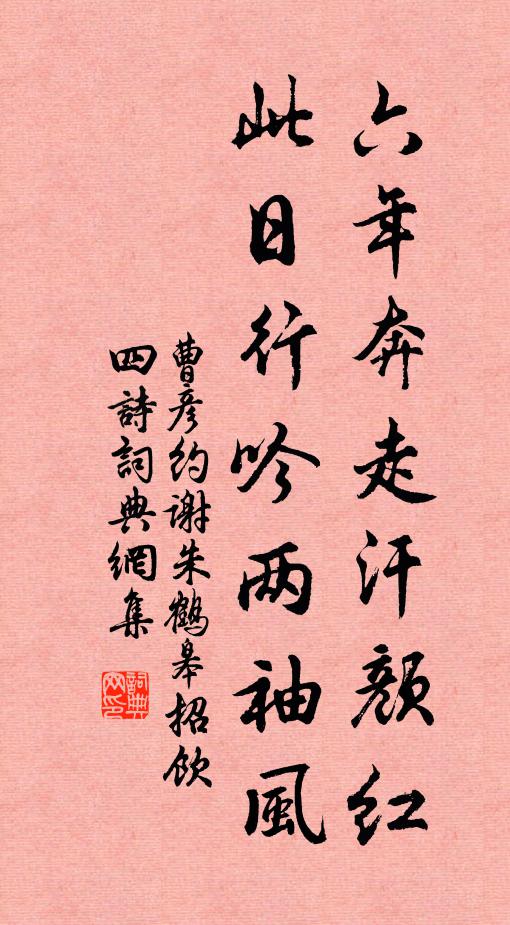 六年奔走汗颜红
此日行吟两袖風
曹彦约谢朱鶴皋招飲
四詩詞典網集
詞典
网印